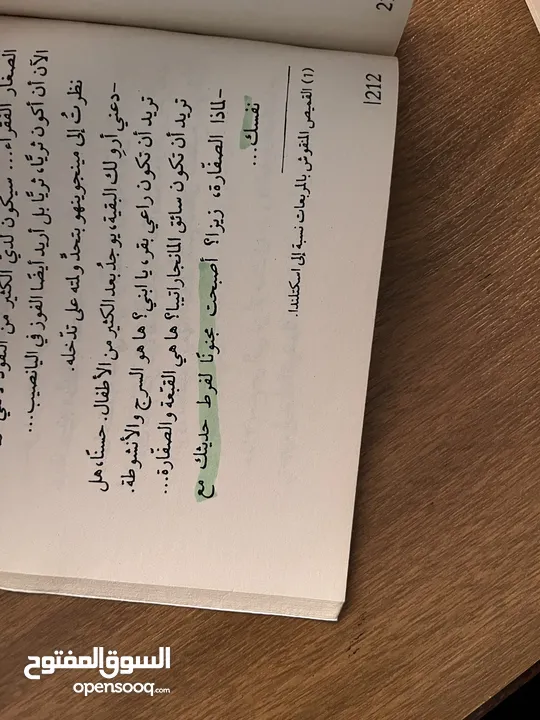 الصغار الفقراء... سيكون لديّ الكثير من النقود
الآن أن أكون ثريًّا، ثريًّا بل أريد أيضًا الفوز في اليانصيب...
نظرتُ إلى مينجوينهو بتحدٍّ ولمته على تدخّله.
-دعني أروِ لك البقية، يوجد بعد الكثير من الأطفال. حسنًا، هل
تريد أن تكون راعي بقر، يا ابني؟ ها هو السرج والأنشوطة.
تريد أن تكون سائق المانجاراتيبا؟ ها هي القبّعة والصفّارة...
-لماذا الصفّارة، زيزا؟ أصبحت مجنونًا لفرط حديثك مع
نفسك...
(1) القميص المنقوش بالمربعات نسبة إلى اسكتلندا.
212
2
السوق المفتوح
opensooq.com